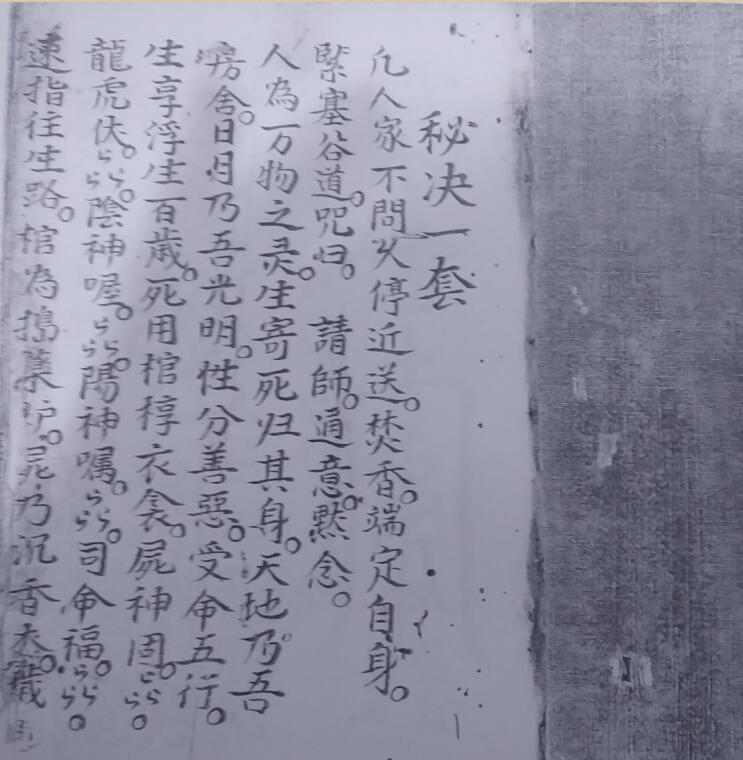 秘决一套
凡人家不問久停近送。焚香。端定自身。
緊塞谷道。咒曰。 請師。通意。黙念。
人為万物之灵。生寄死归其身。天地乃吾
房舍。日月乃吾光明。性分善惡。受命五行。
生享浮生百歲。死用棺椁衣衾。屍神固。ヒヒ。
龍虎伏。ヒヒ。陰神喔。ヒヒ。陽神嘱。ヒヒ。司命福。ヒヒ。
速指往生路。棺為搗藥炉。屍乃沉香木。